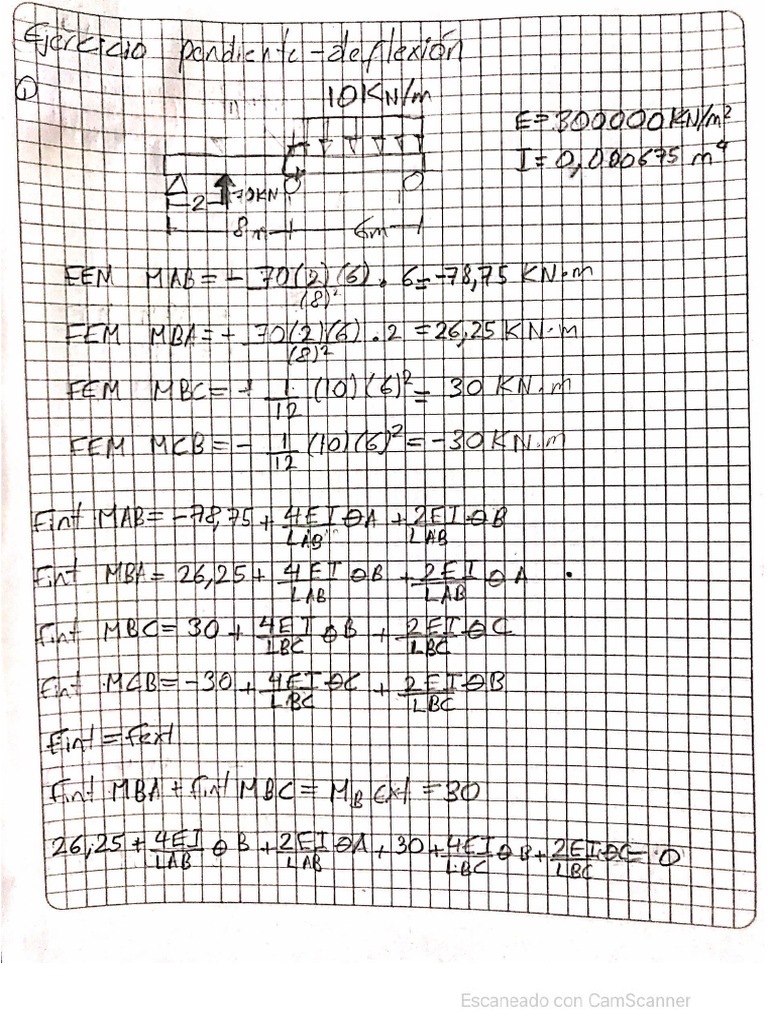 Ejercicio pendiente-deflexión
①
10KN/m
E=300000KN/m²
I=0,000675 m⁴
2
70KN
8m
6m
FEM MAB = - 70(2)(6)/(8)² . 6 = -78,75 KN.m
FEM MBA = + 70(2)(6)/(8)² . 2 = 26,25 KN.m
FEM MBC = + 1/12 (10)(6)² = 30 KN.m
FEM MCB = - 1/12 (10)(6)² = -30 KN.m
Fint MAB = -78,75 + 4EI/LAB θA + 2EI/LAB θB
Fint MBA = 26,25 + 4EI/LAB θB + 2EI/LAB θA .
Fint MBC = 30 + 4EI/LBC θB + 2EI/LBC θC
Fint MCB = -30 + 4EI/LBC θC + 2EI/LBC θB
Fint = Fext
Fint MBA + Fint MBC = MB ext = 30
26,25 + 4EI/LAB θB + 2EI/LAB θA + 30 + 4EI/LBC θB + 2EI/LBC θC = 0
Escaneado con CamScanner